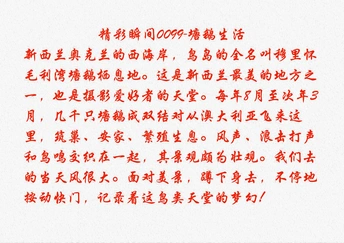 精彩瞬间0099-塘鹅生活
新西兰奥克兰的西海岸，鸟岛的全名叫穆里怀
毛利湾塘鹅栖息地。这是新西兰最美的地方之
一，也是摄影爱好者的天堂。每年8月至次年3
月，几千只塘鹅成双结对从澳大利亚飞来这
里，筑巢、安家、繁殖生息。风声、浪击打声
和鸟鸣交织在一起，其景观颇为壮观。我们去
的当天风很大。面对美景，蹲下身去，不停地
按动快门，记录着这鸟类天堂的梦幻！